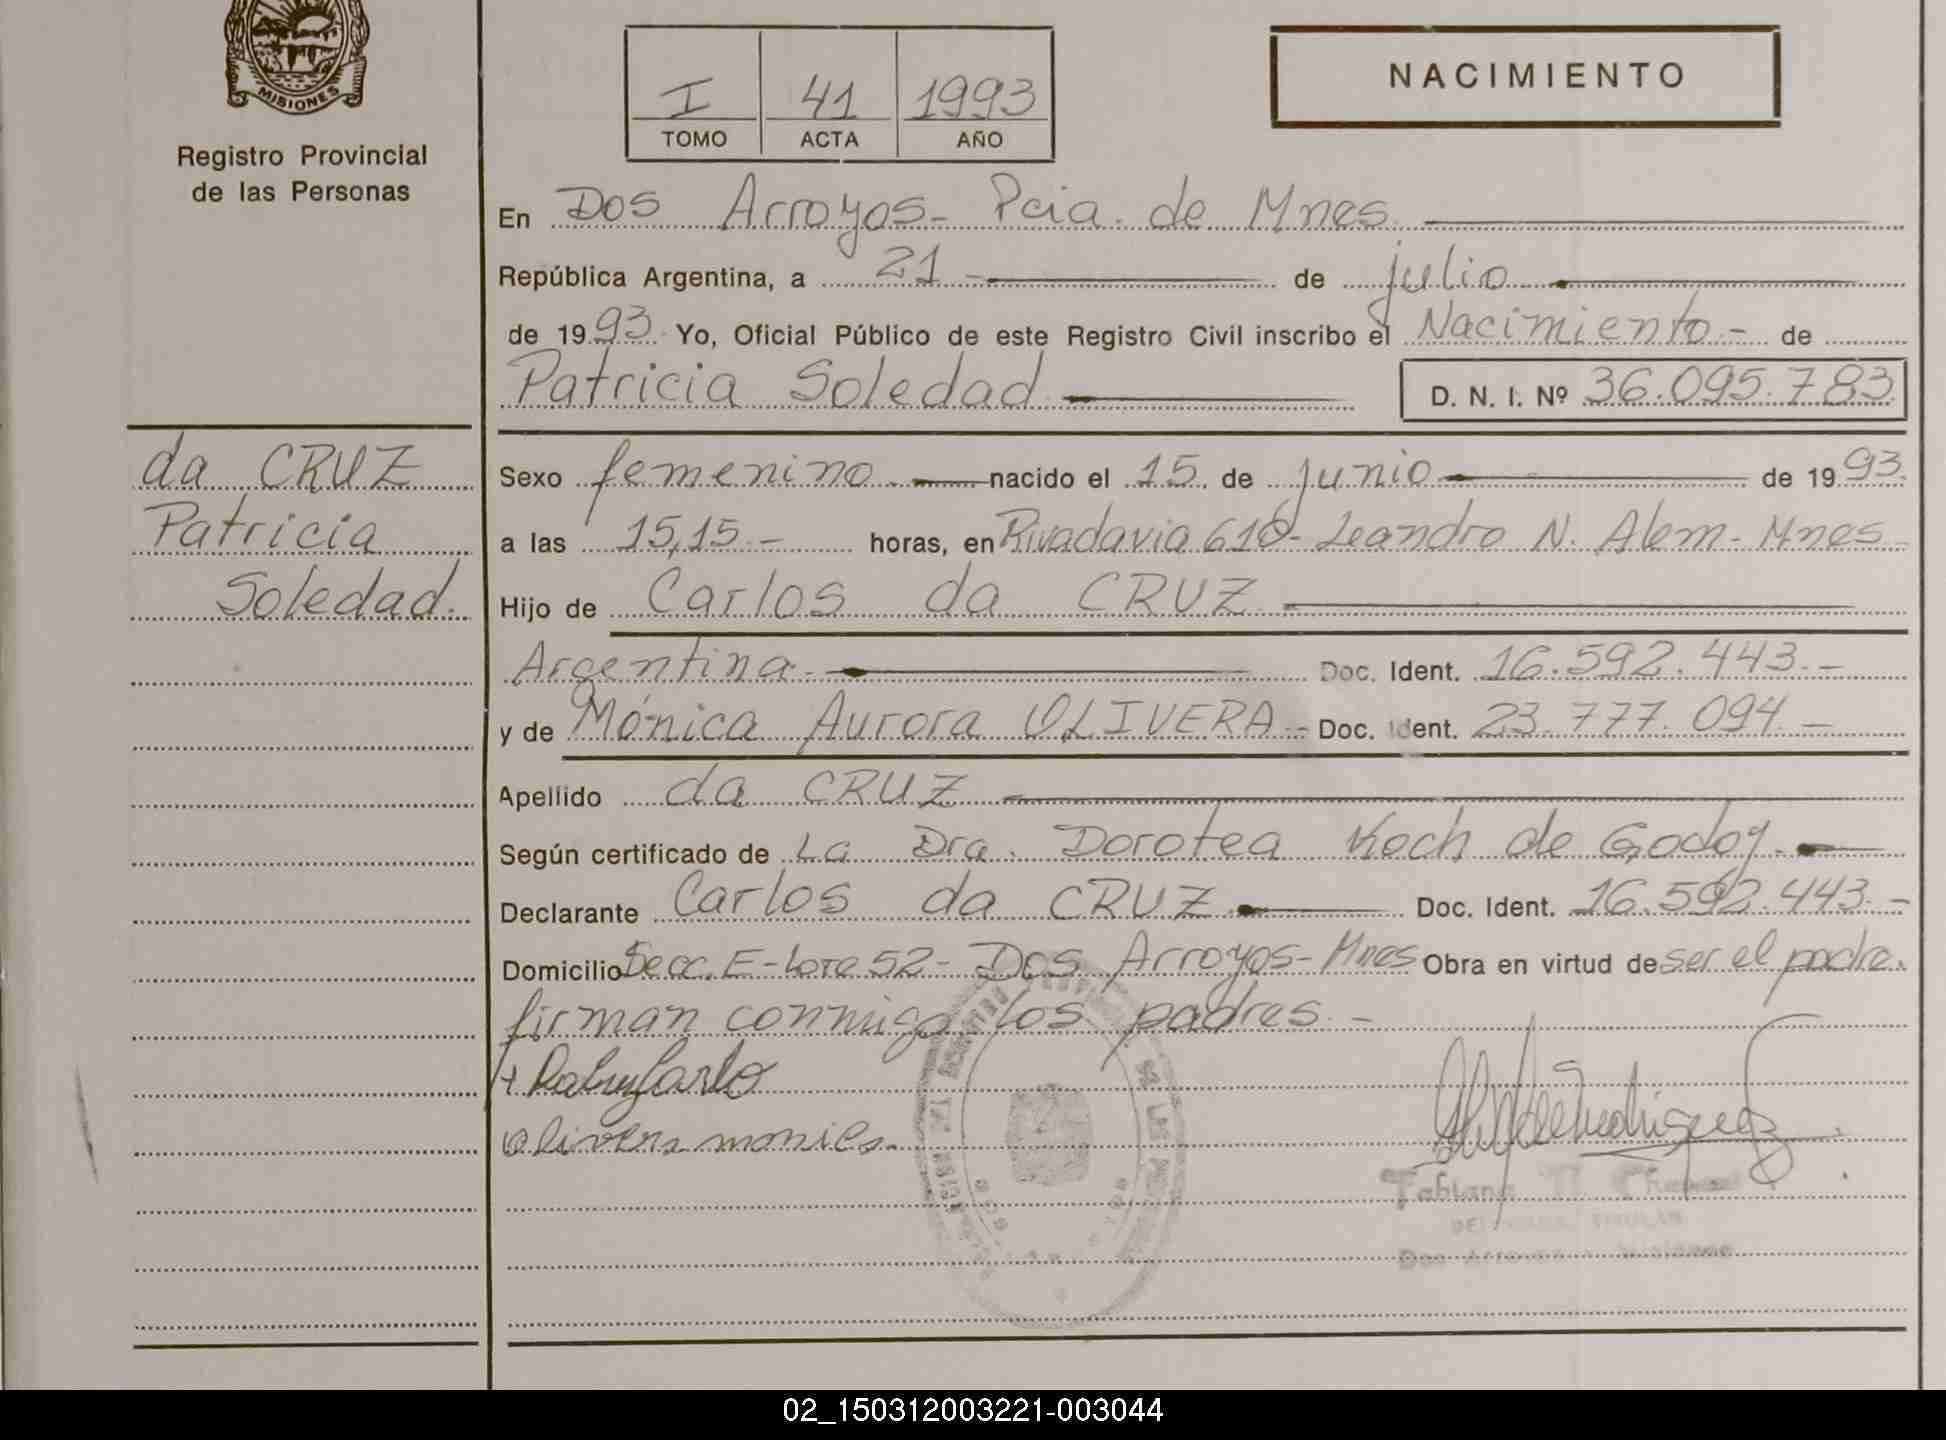 MISIONES
Registro Provincial
de las Personas
I 41 1993
TOMO ACTA AÑO
NACIMIENTO
En Dos Arroyos- Pcia. de Mnes
República Argentina, a 21 - de julio
de 1993 Yo, Oficial Público de este Registro Civil inscribo el Nacimiento - de
Patricia Soledad D. N. I. Nº 36.095.783
da CRUZ
Patricia
Soledad.
Sexo femenino. nacido el 15 de junio de 1993
a las 15,15 - horas, en Rivadavia 610- Leandro N. Alem - Mnes
Hijo de Carlos da CRUZ
Argentina. Doc. Ident. 16.592.443.-
y de Mónica Aurora OLIVERA - Doc. Ident. 23.777.094 -
Apellido da CRUZ
Según certificado de La Dra. Dorotea Koch de Godoy.
Declarante Carlos da CRUZ Doc. Ident. 16.592.443.-
Domicilio Secc. E - Lote 52 - Dos Arroyos - Mnes Obra en virtud de ser el padre.
firman conmigo los padres. -
olivera monica
02_150312003221-003044